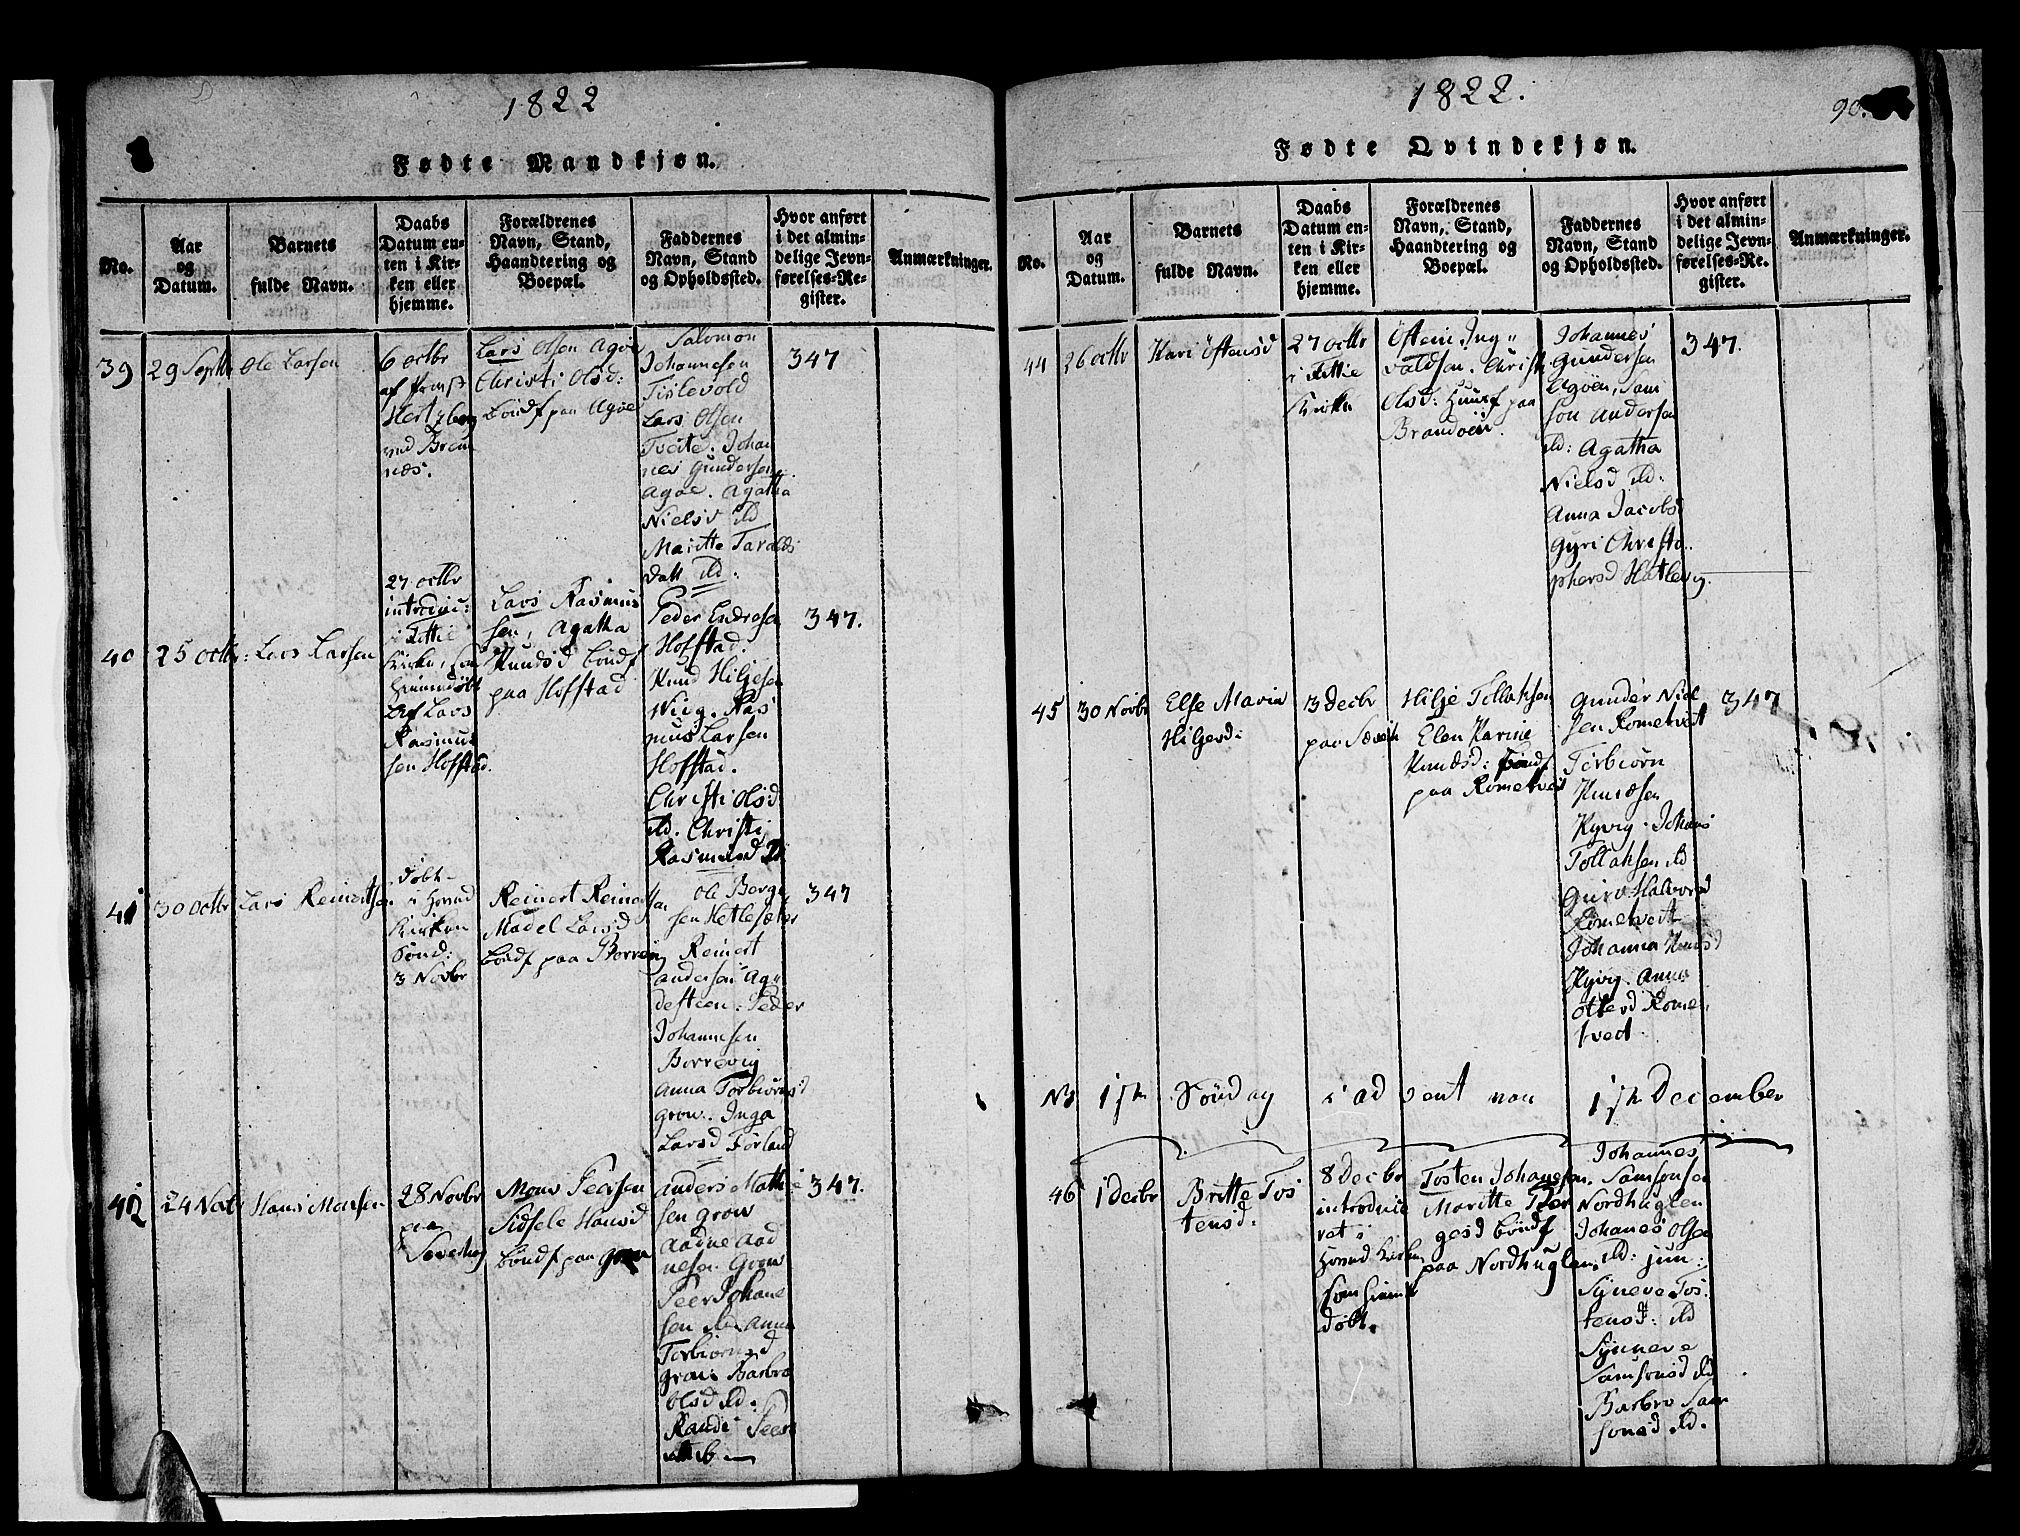 1822
Fødte Mandkjøn.
No.
Aar
og
Datum.
Barnets
fulde Navn.
Daabs
Datum en-
ten i Kir-
ken eller
hjemme.
Forældrenes
Navn, Stand,
Haandtering og
Boepæl.
Faddernes
Navn, Stand
og Opholdssted.
Hvor anført
i det almin-
delige Jevn-
førelses-Re-
gister.
Anmærkninger.
39
29 Septbr
Ole Larsen
6 octbr
af Præst
Hertzberg
ved Brem
næs.
Lars Olsen Agøe
Christi Olsd:
bøndf paa Agøe
Salomon
Johannesen
Tislevold
Lars Olsen
Tveite. Johan
nes Gundersen
Agøe. Agatha
Nielsd ibd
Maritte Taralds
datt ibd.
347
40
25 octbr:
Lars Larsen
27 octbr
introduc:
i Fittie
Kirke, som
hiemdøbt
af Lars
Rasmus
sen Hofstad.
Lars Rasmus
sen, Agatha
Knudsd bøndf
paa Hofstad
Peder Endresen
Hofstad.
Knud Hiljesen
Wiig. Ras
mus Larsen
Hofstad.
Christi Olsd
ibd. Christi
Rasmusd
347.
41
30 octbr
Lars Reinertsen
døbt
i Hovud
Kirken
Sønd:
3 Novbr
Reinert Reinertsen
Madel Larsd
bøndf paa Borrevig
Ole Berge
sen Hetlesæter
Reinert
Andersen Ag
desteen: Peder
Johannesen
Borrevig
Anna Torbiørnsd
Grow. Inga
Larsd Førland
347
42
24 Novb
Hans Monsen
28 Novbr
paa
Mons Peersen
Sidsele Hansd
bøndf paa Grow
Anders Mathie
sen Grow
Aadne Aad
nesen Grow
Peer Johane
sen ibd Anna
Torbiørnsd
Grow Barbro
Olsd ibd.
Randi Peers
347.
1822.
90.
Fødte Qvindekjøn.
No.
Aar
og
Datum.
Barnets
fulde Navn.
Daabs
Datum en-
ten i Kir-
ken eller
hjemme.
Forældrenes
Navn, Stand,
Haandtering og
Boepæl.
Faddernes
Navn, Stand
og Opholdssted.
Hvor anført
i det almin-
delige Jevn-
førelses-Re-
gister.
Anmærkninger.
44
26 octbr
Kari Östensd
27 octbr
i Fittie
Kirke
Östen Ing
valdsen. Christi
Olsd: Huusf paa
Brandøen.
Johannes
Gundersen
Agøen, Sam
son Andersen
ibd: Agatha
Nielsd ibd.
Anna Jacobs
Gyri Christo
phersd Hatlevig.
347.
45
30 Novbr
Else Maria
Hiljesd:
3 Decbr
paa
Hilje Tollaksen
Elen Karine
Knudsd: bøndf
paa Rometvet
Gunder Niel
sen Rometvet
Torbiørn
Knudsen
Kyvig. Johans
Tollaksen ibd
Guro Halvorsd
Rometvet
Johanna Knudsd
Kyvig. Anna
Ottersd Rome
tvedt
347
NB 1ste Søndag i advent var 1ste December
46
1 Decbr
Britte Tos
tensd:
8 Decbr
introduce
ret i
Hovud Kirken
som hiemme
døbt.
Tosten Johanesen.
Maritte Tor
gesd bøndf
paa Nordhuglen.
Johannes
Samsonsen
Nordhuglen
Johanes Olsen
ibd: jun:
Syneve Tos
tensd: ibd
Synneve
Samsonsd ibd
Barbro Sam
sonsd ibd.